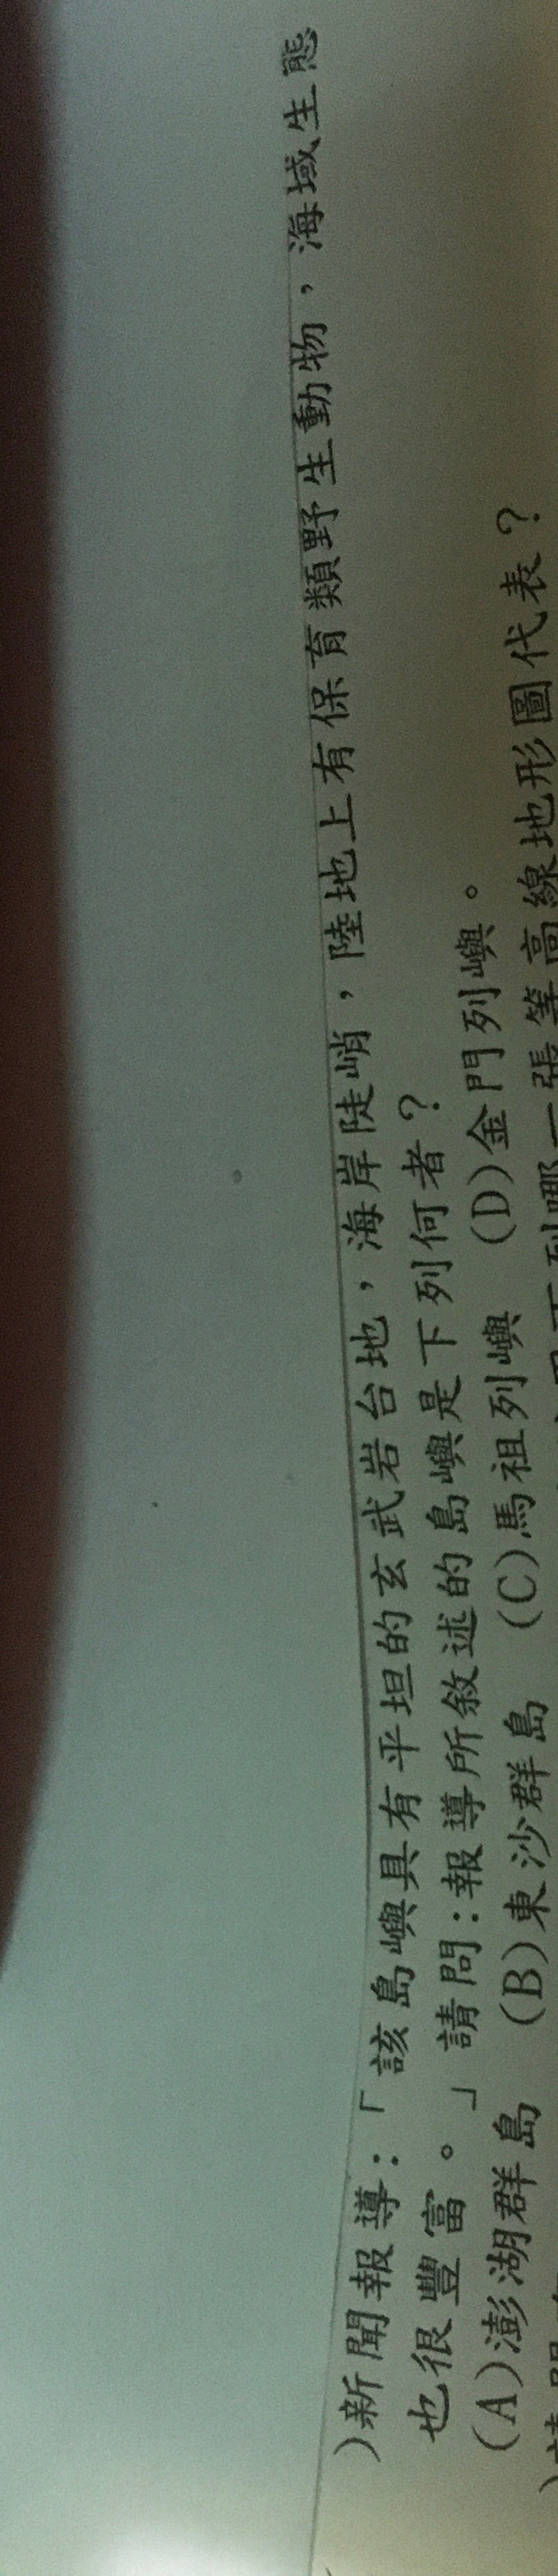 )新聞報導:「該島嶼具有平坦的玄武岩台地，海岸陡峭，陸地上有保育類野生動物，海域生態
也很豐富。」請問:報導所敘述的島嶼是下列何者?
(A)澎湖群島 (B)東沙群島 (C)馬祖列嶼 (D)金門列嶼。
下列哪一張等高線地形圖代表?